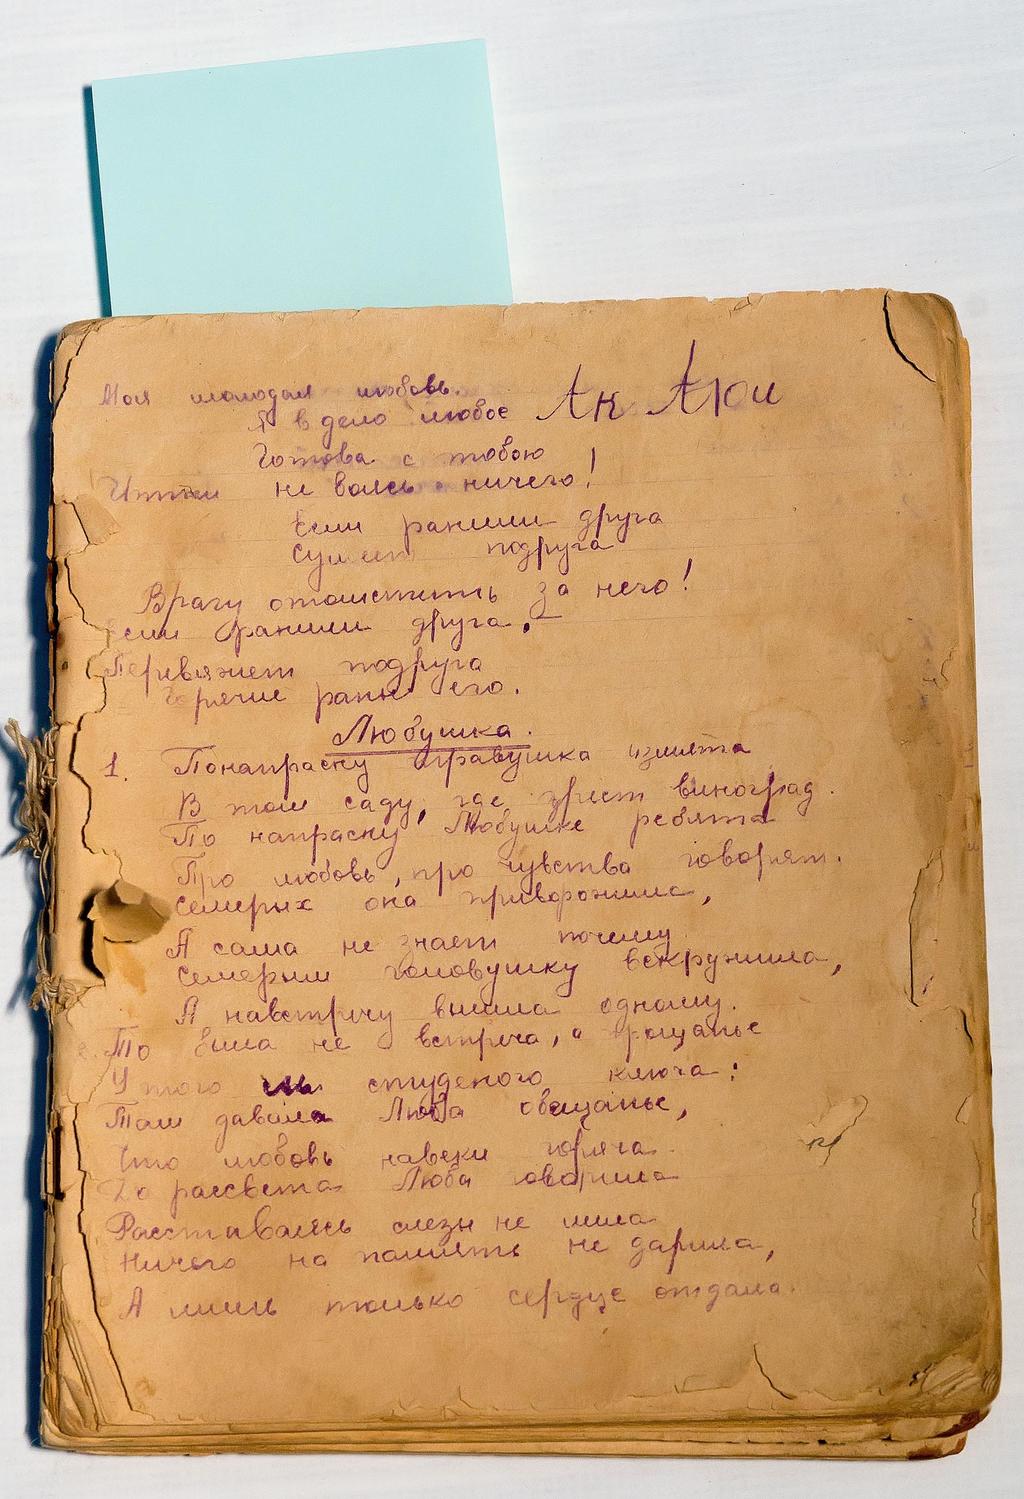 Моя молодая любовь.
Я в дело любое Ак Аюи
Готова с тобою
Иттти не боясь ничего!
Если раними друга
Сумеет подруга
Врагу отомстить за него!
Если раними друга,
Перевяжет подруга
Горячие раны его.
Любушка.
1. Понапраску травушка измята
В том саду, где зреет виноград.
По напраску Любушке ребята
Про любовь, про чувства говорят.
Семерых она приворожила,
А сама не знает почему
Семерым головушку вскружила,
А навстречу вышла одному.
То была не встреча, а прощанье
У того студеного ключа:
Там давала Люба обещанье,
Что любовь навеки горяча.
До рассвета Люба говорила
Расставаясь слезы не лила
Ничего на память не дарила,
А лишь только сердце отдала.